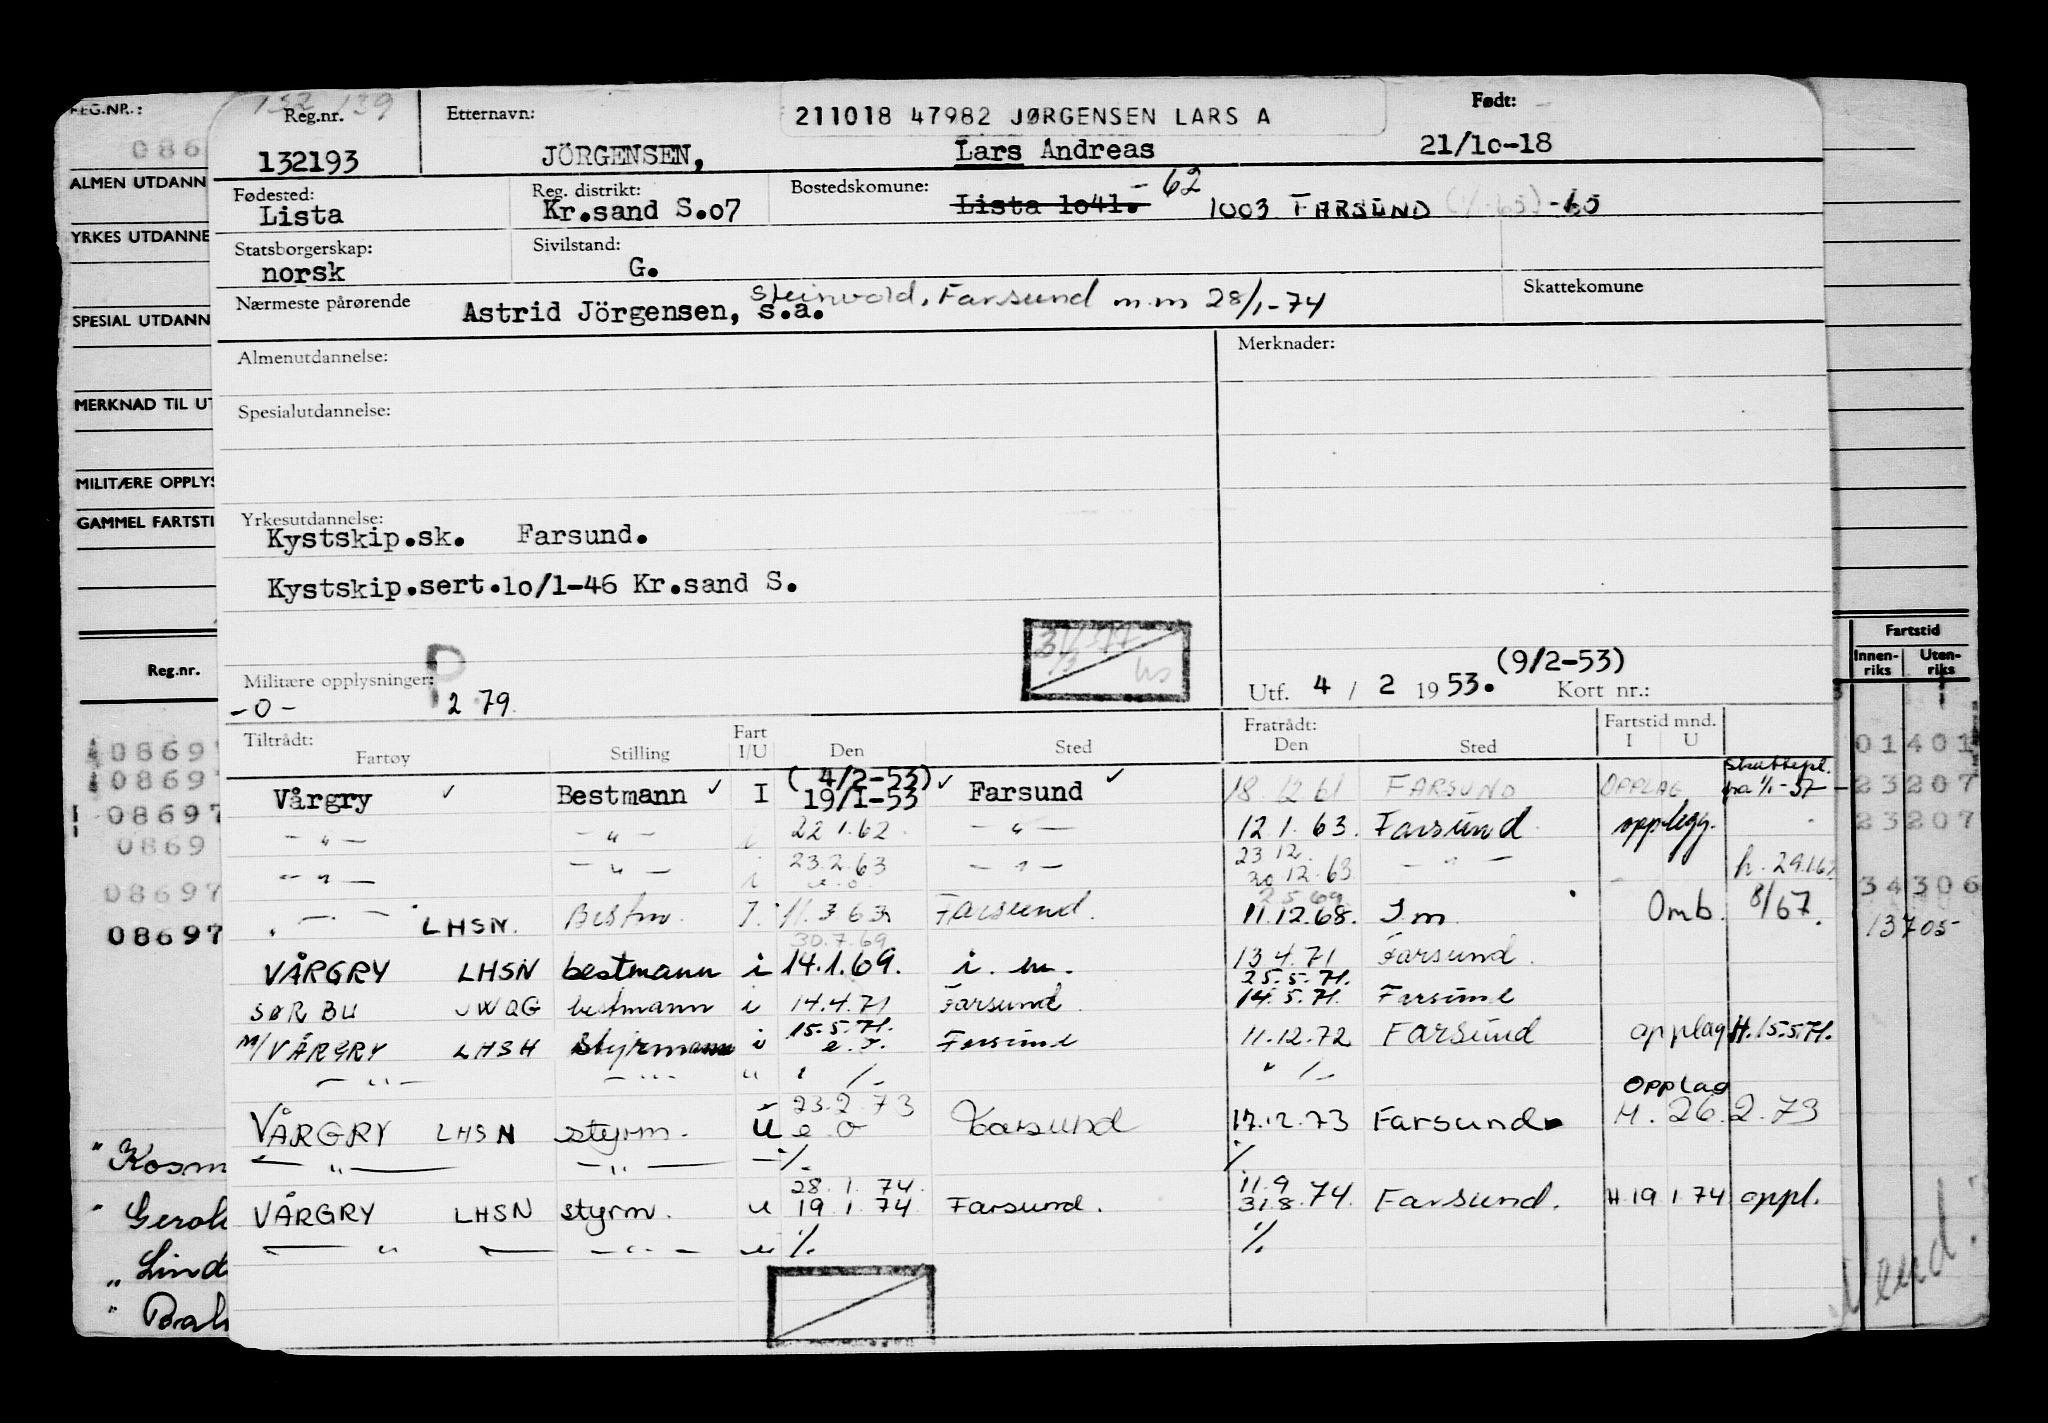 REG.NR.:
086
ALMEN UTDANN
YRKES UTDANNE
SPESIAL UTDANN
MERKNAD TIL UT
MILITÆRE OPPLYS
GAMMEL FARTSTI
Reg.nr.
08697
08697
08697
0869
08697
08697
" Kosm
" Gerok
" Lind
"
132 139
Reg.nr. Etternavn: 211018 47982 JØRGENSEN LARS A Født:
132193 JÖRGENSEN, Lars Andreas 21/10-18
Fødested: Reg. distrikt: Bostedskomune: - 62
Lista Kr.sand S.07 Lista 1041. 1003 FARSUND -65
Statsborgerskap: Sivilstand:
norsk G.
Nærmeste pårørende Steinvold, Farsund m.m 28/1-74 Skattekomune
Astrid Jörgensen, s.a.
Almenutdannelse: Merknader:
Spesialutdannelse:
Yrkesutdannelse:
Kystskip.sk. Farsund.
Kystskip.sert.10/1-46 Kr.sand S.
Militære opplysninger: P (9/2-53)
-0- 2 79. Utf. 4 / 2 1953. Kort nr.:
Tiltrådt: Fratrådt: Fartstid mnd.
Fartøy Stilling Fart I/U Den Sted Den Sted I U
(4/2-53) Skattepl.
Vårgry Bestmann I 19/I-53 Farsund 18.12.61 FARSUND OPPLAG fra 1/1-57
- " - - " - i 22 1.62. - " - 12.1.63. Farsund opplegg.
23 12.
- " - - " - i 23.2.63 - " - 30 12.63 - " - h. 29.1.63
2.5.69
- " - LHSN. Bestm. I. 11.3 63 Farsund. 11.12.68. I m Omb. 8/67.
30.7.69 13.4.71 Farsund.
VÅRGRY LHSN bestmann i 14.1.69. i. m. 25.5.71.
SØR BU JWQG bestmann i 14.4.71 Farsund 14.5.71. Farsund
15.5.71.
M/VÅRGRY LHSN Styrmann i e.o. Farsund 11.12.72 FARSUND opplag H.15.5.71.
- " - - " - " " /- " /-
23.2.73 Opplag
VÅRGRY LHSN styrm. u e o Farsund 17.12.73 Farsund. H. 26.2.73
- " - - " - - /. /.
28.1.74. 11.9
VÅRGRY LHSN styrm. u 19 1 74 Farsund. 31.8.74. Farsund. H 19 1.74 oppl.
- " - - " - /. /.
Fartstid
Innen-riks Uten-riks
01401
23207
23207
34306
13705